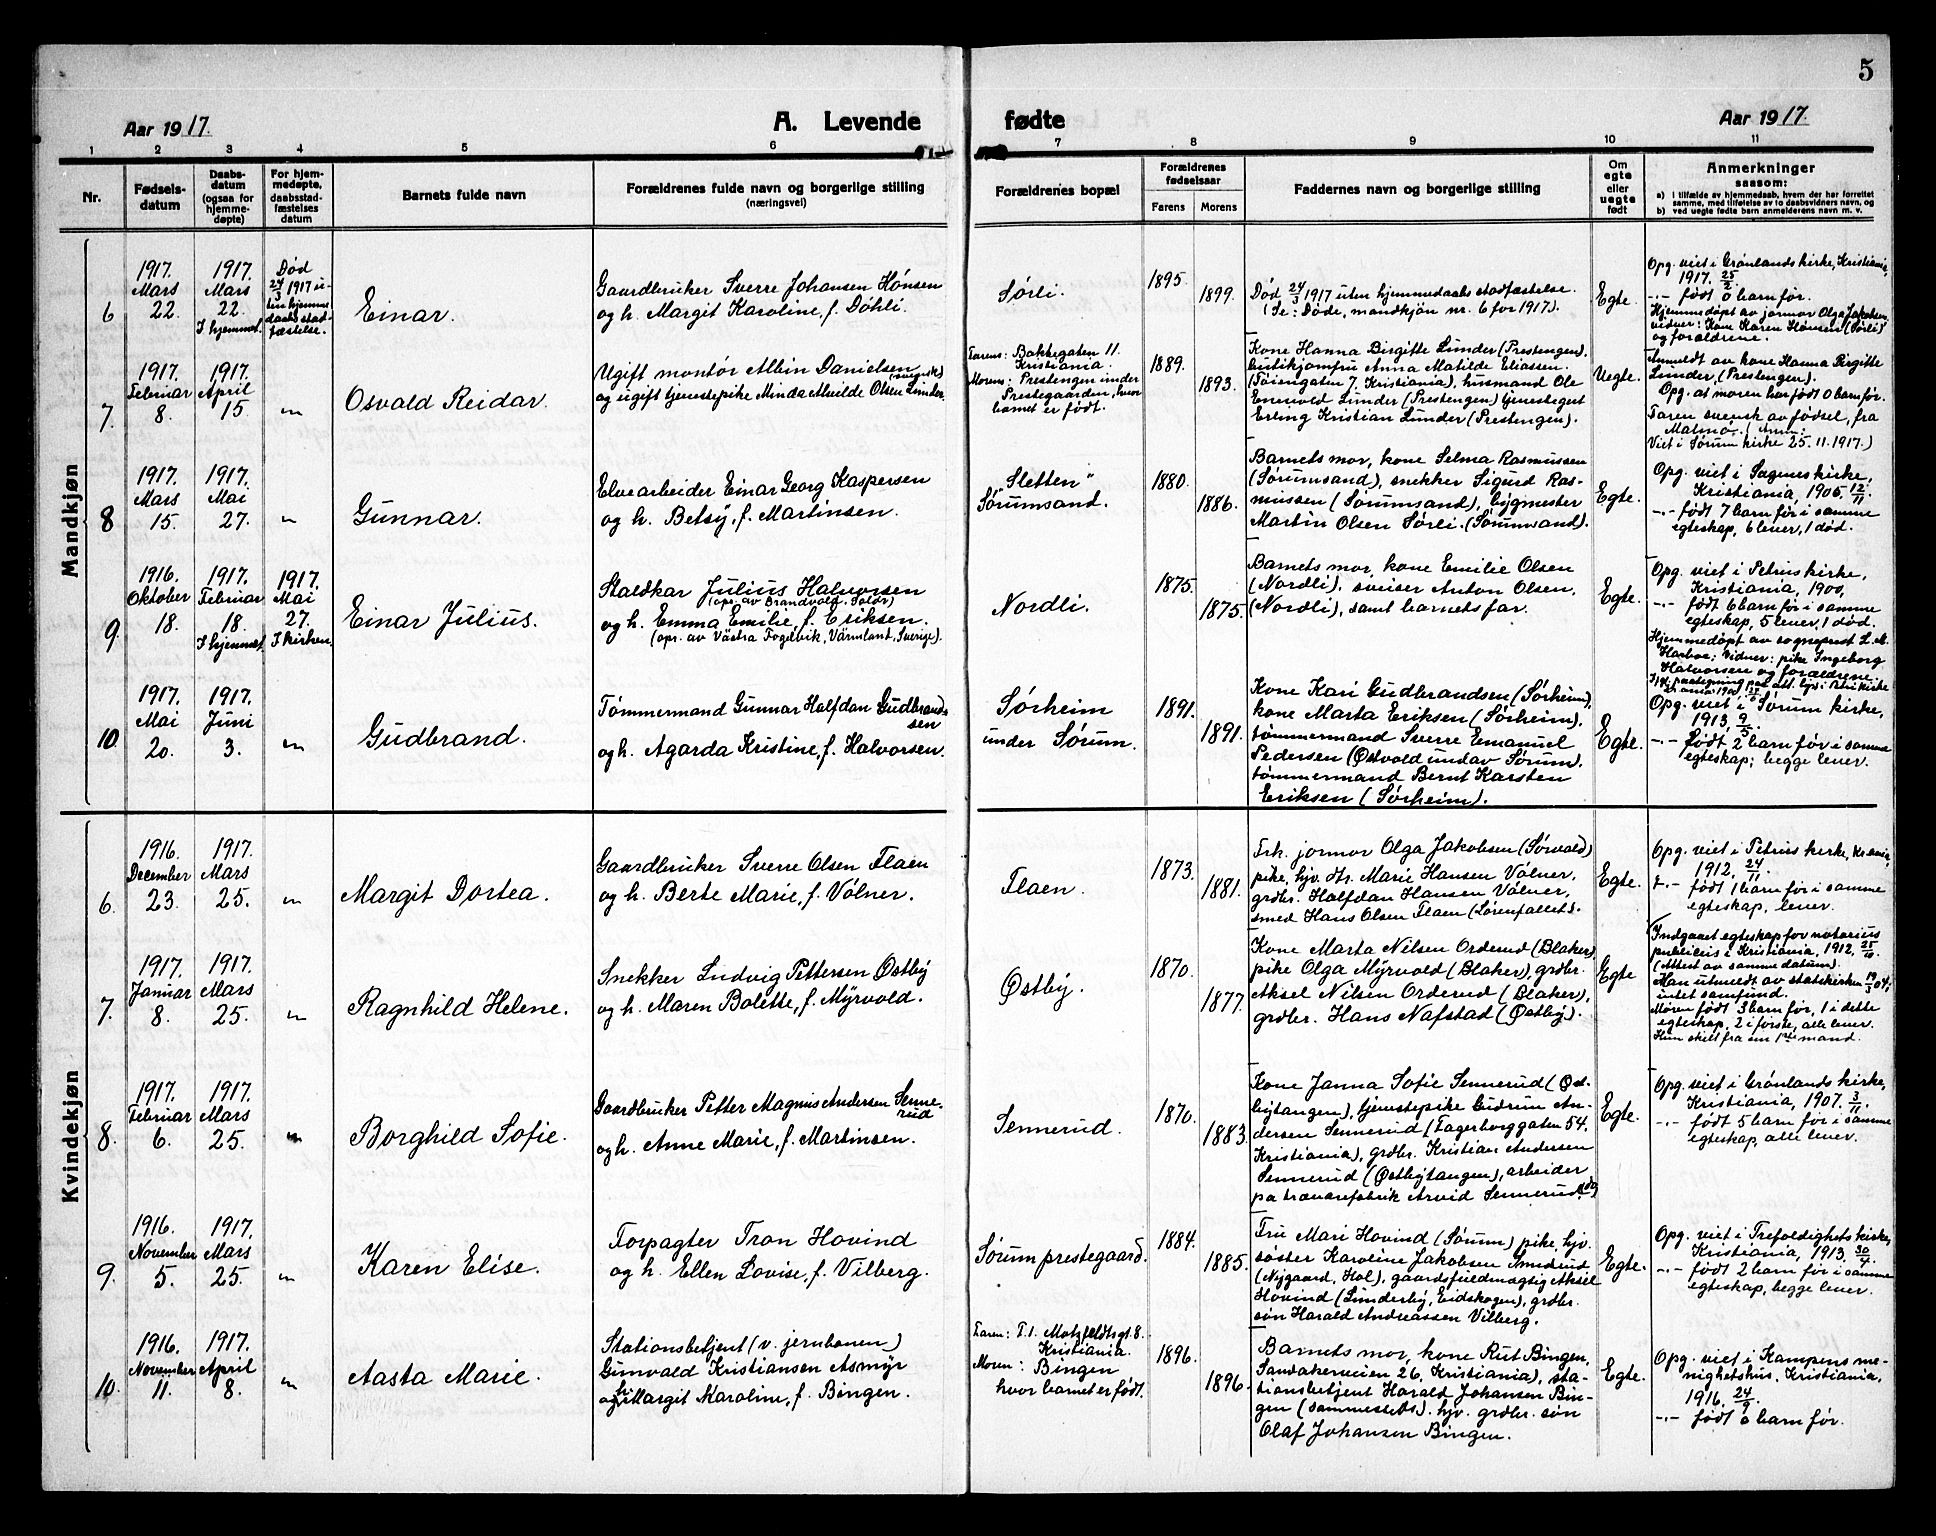 5
Aar 1917.
A. Levende fødte
Aar 1917.
1 2 3 4 5 6 7 8 9 10 11
Nr.
Fødsels-
datum
Daabs-
datum
(ogsaa for
hjemme-
døpte)
For hjem-
medøpte,
daabsstad-
fæstelses
datum
Barnets fulde navn
Forældrenes fulde navn og borgerlige stilling
(næringsvei)
Forældrenes bopæl
Forældrenes
fødselsaar
Farens
Morens
Faddernes navn og borgerlige stilling
Om
egte
eller
uegte
født
Anmerkninger
saasom:
a) i tilfælde av hjemmedaab, hvem der har forrettet
samme, med tilføielse av to daabsvidners navn, og
b) ved uegte fødte barn anmelderens navn m. v.
Mandkjøn
6
1917.
Mars
22.
1917.
Mars
22.
I hjemmet.
Død
24/3 1917 u-
ten hjemme-
daabs stad-
fæstelse.
Einar.
Gaardbruker Sverre Johansen Hønsen
og h. Margit Karoline, f. Døhli.
Sørli.
1895.
1899.
Død 24/3 1917 uten hjemmedaabs stadfæstelse.
(Se: Døde, mandkjøn nr. 6 for 1917).
Egte.
Opg. viet i Grønlands kirke, Kristiania,
1917. 25/2.
-"- født 0 barn før.
Hjemmedøpt av jormor Olga Jakobsen,
vidner: Kone Karen Hønsen (Sørli)
og forældrene.
7.
1917.
Februar
8.
1917.
April
15.
"
Osvald Reidar.
Ugift montør Albin Danielsen (svensk)
og ugift tjenestepike Minda Alvilde Olsen Lunder.
Farens: Bakkegaten 11.
Kristiania.
Morens: Prestengen under
Prestegaarden, hvor
barnet er født.
1889.
1893.
Kone Hanna Birgitte Lunder (Prestengen),
butikjomfru Anna Matilde Eliassen.
(Tøiengaten 7, Kristiania), husmand Ole
Enevold Lunder (Prestengen) tjenestegut
Erling Kristian Lunder (Prestengen).
Uegte.
Anmeldt av kone Hanna Birgitte
Lunder, (Prestengen).
Opg. at moren har født 0 barn før.
Faren svensk av fødsel, fra
Malmø. (Anm:
Viet i Sørum kirke 25.11.1917.)
8
1917.
Mars
15.
1917.
Mai
27.
"
Gunnar.
Elvearbeider Einar Georg Kaspersen
og h. Betsy, f. Martinsen.
"Sletten"
Sørumsand.
1880.
1886.
Barnets mor, kone Selma Rasmussen
(Sørumsand), snekker Sigurd Ras-
mussen (Sørumsand), bygmester
Martin Olsen Sørli. (Sørumsand).
Egte.
Opg. viet i Sagenes kirke,
Kristiania, 1905, 12/11.
-"- født 7 barn før i samme
egteskap, 6 lever, 1 død.
9
1916.
Oktober
18.
1917.
Februar
18.
I hjemmet.
1917.
Mai
27.
I kirken.
Einar Julius.
Staldkar Julius Halvorsen
(opr. av Brandvold, Solør)
og h. Emma Emilie, f. Eriksen.
(opr. av Västra Fogelvik, Värmland, Sverige).
Nordli.
1875.
1875.
Barnets mor, kone Emilie Olsen
(Nordli), sveiser Anton Olsen,
(Nordli), samt barnets far.
Egte.
Opg. viet i Petrus kirke,
Kristiania, 1900,
-"- født 6 barn før i samme
egteskap, 5 lever, 1 død.
Hjemmedøpt av sogneprest L. M.
Harboe; Vidner: pike Ingeborg
Halvorsen og forældrene.
10
1917.
Mai
20.
1917.
Juni
3.
"
Gudbrand.
Tømmermand Gunnar Halfdan Gudbrand-
sen
og h. Agarda Kristine, f. Halvorsen.
Sørheim
under Sørum.
1891.
1891.
Kone Kari Gudbrandsen (Sørheim),
kone Marta Eriksen (Sørheim),
tømmermand Sverre Emanuel
Pedersen (Østvold und av Sørum),
tømmermand Bernt Karsten
Eriksen (Sørheim).
Egte.
Opg. viet i Sørum kirke,
1913, 9/5.
-"- født 2 barn før i samme
egteskap; begge lever.
Kvindekjøn
6.
1916.
December
23.
1917.
Mars
25.
"
Margit Dortea.
Gaardbruker Sverre Olsen Flaen
og h. Berte Marie, f. Vølner.
Flaen.
1873.
1881.
Frk. jormor Olga Jakobsen (Sørvald)
pike, hjv. hr. Marie Hansen Vølner,
grdbr. Halfdan Hansen Vølner,
smed Hans Olsen Flaen (Lørenfallet).
Egte.
Opg. viet i Petrus kirke, Kr.ania,
1912, 24/11.
-"- født 1 barn før i samme
egteskap, lever.
7.
1917.
Januar
8.
1917.
Mars
25.
"
Ragnhild Helene.
Snekker Ludvig Pettersen Østby
og h. Maren Bolette, f. Myrvold.
Østby.
1870.
1877.
Kone Marta Nilsen Orderud (Blaker)
pike Olga Myrvold (Blaker), grdbr.
Aksel Nilsen Orderud (Blaker),
grdbr. Hans Nafstad (Østby).
Egte
Indgaaet egteskap for notarius
publicus i Kristiania, 1912, 25/10.
(Attest av samme datum).
Man utmeldt av statskirken 19/3 04,
intet samfund.
Moren født 3 barn før, 1 i dette
egteskap, 2 i første, alle lever.
Hun skilt fra sin 1ste mand.
8.
1917.
Februar
6.
1917.
Mars
25.
"
Borghild Sofie.
Gaardbruker Petter Magnus Andersen Senne-
rud
og h. Anne Marie, f. Martinsen.
Sennerud.
1870.
1883.
Kone Janna Sofie Sennerud (Øst-
bytangen), tjenestepike Gudrun An-
dersen Sennerud (Fagerborggaten 54,
Kristiania), grdbr. Kristian Andersen
Sennerud (Østbytangen), arbeider
pa trævarefabrik Arvid Sennerud,
Egte.
Opg. viet i Grønlands kirke,
Kristiania, 1907. 3/11.
-"- født 5 barn før i samme
egteskap, alle lever.
9.
1916.
November
5.
1917.
Mars
25.
"
Karen Elise.
Forpagter Tron Hovind
og h. Ellen Lovise, f. Vilberg.
Sørum prestegaard.
1884.
1885.
Fru Mari Hovind (Sørum) pike hjv.
søster Karoline Jakobsen Smedsrud
(Nygaard, Hol), gaardsfuldmægtig Aksel
Hovind (Lunderby, Eidskogen), grdbr.
søn Harald Andreassen Vilberg.
Egte.
Opg. viet i Trefoldighetskirke,
Kristiania, 1913. 30/4.
-"- født 2 barn før i samme
egteskap, begge lever.
10.
1916.
November
11.
1917.
April
8.
"
Aasta Marie.
Stationsbetjent (v. jernbanen)
Gunvald Kristiansen Asmyr
og h. Margit Maroline, f. Bingen.
Faren: F. 1. Motzfeldtsgt. 8.
Kristiania.
Moren: Bingen
hvor barnet er født.
1896.
1896.
Barnets mor, kone Rut Bingen,
Sandakerveien 26, Kristiania), sta-
tionsbetjent Harald Johansen Bin-
gen (sammesteds). hjv. grdbr. søn
Olaf Johansen Bingen.
Egte.
Opg. viet i Kampens me-
nighetshus, Kristiania,
1916, 24/9.
-"- født 0 barn før.